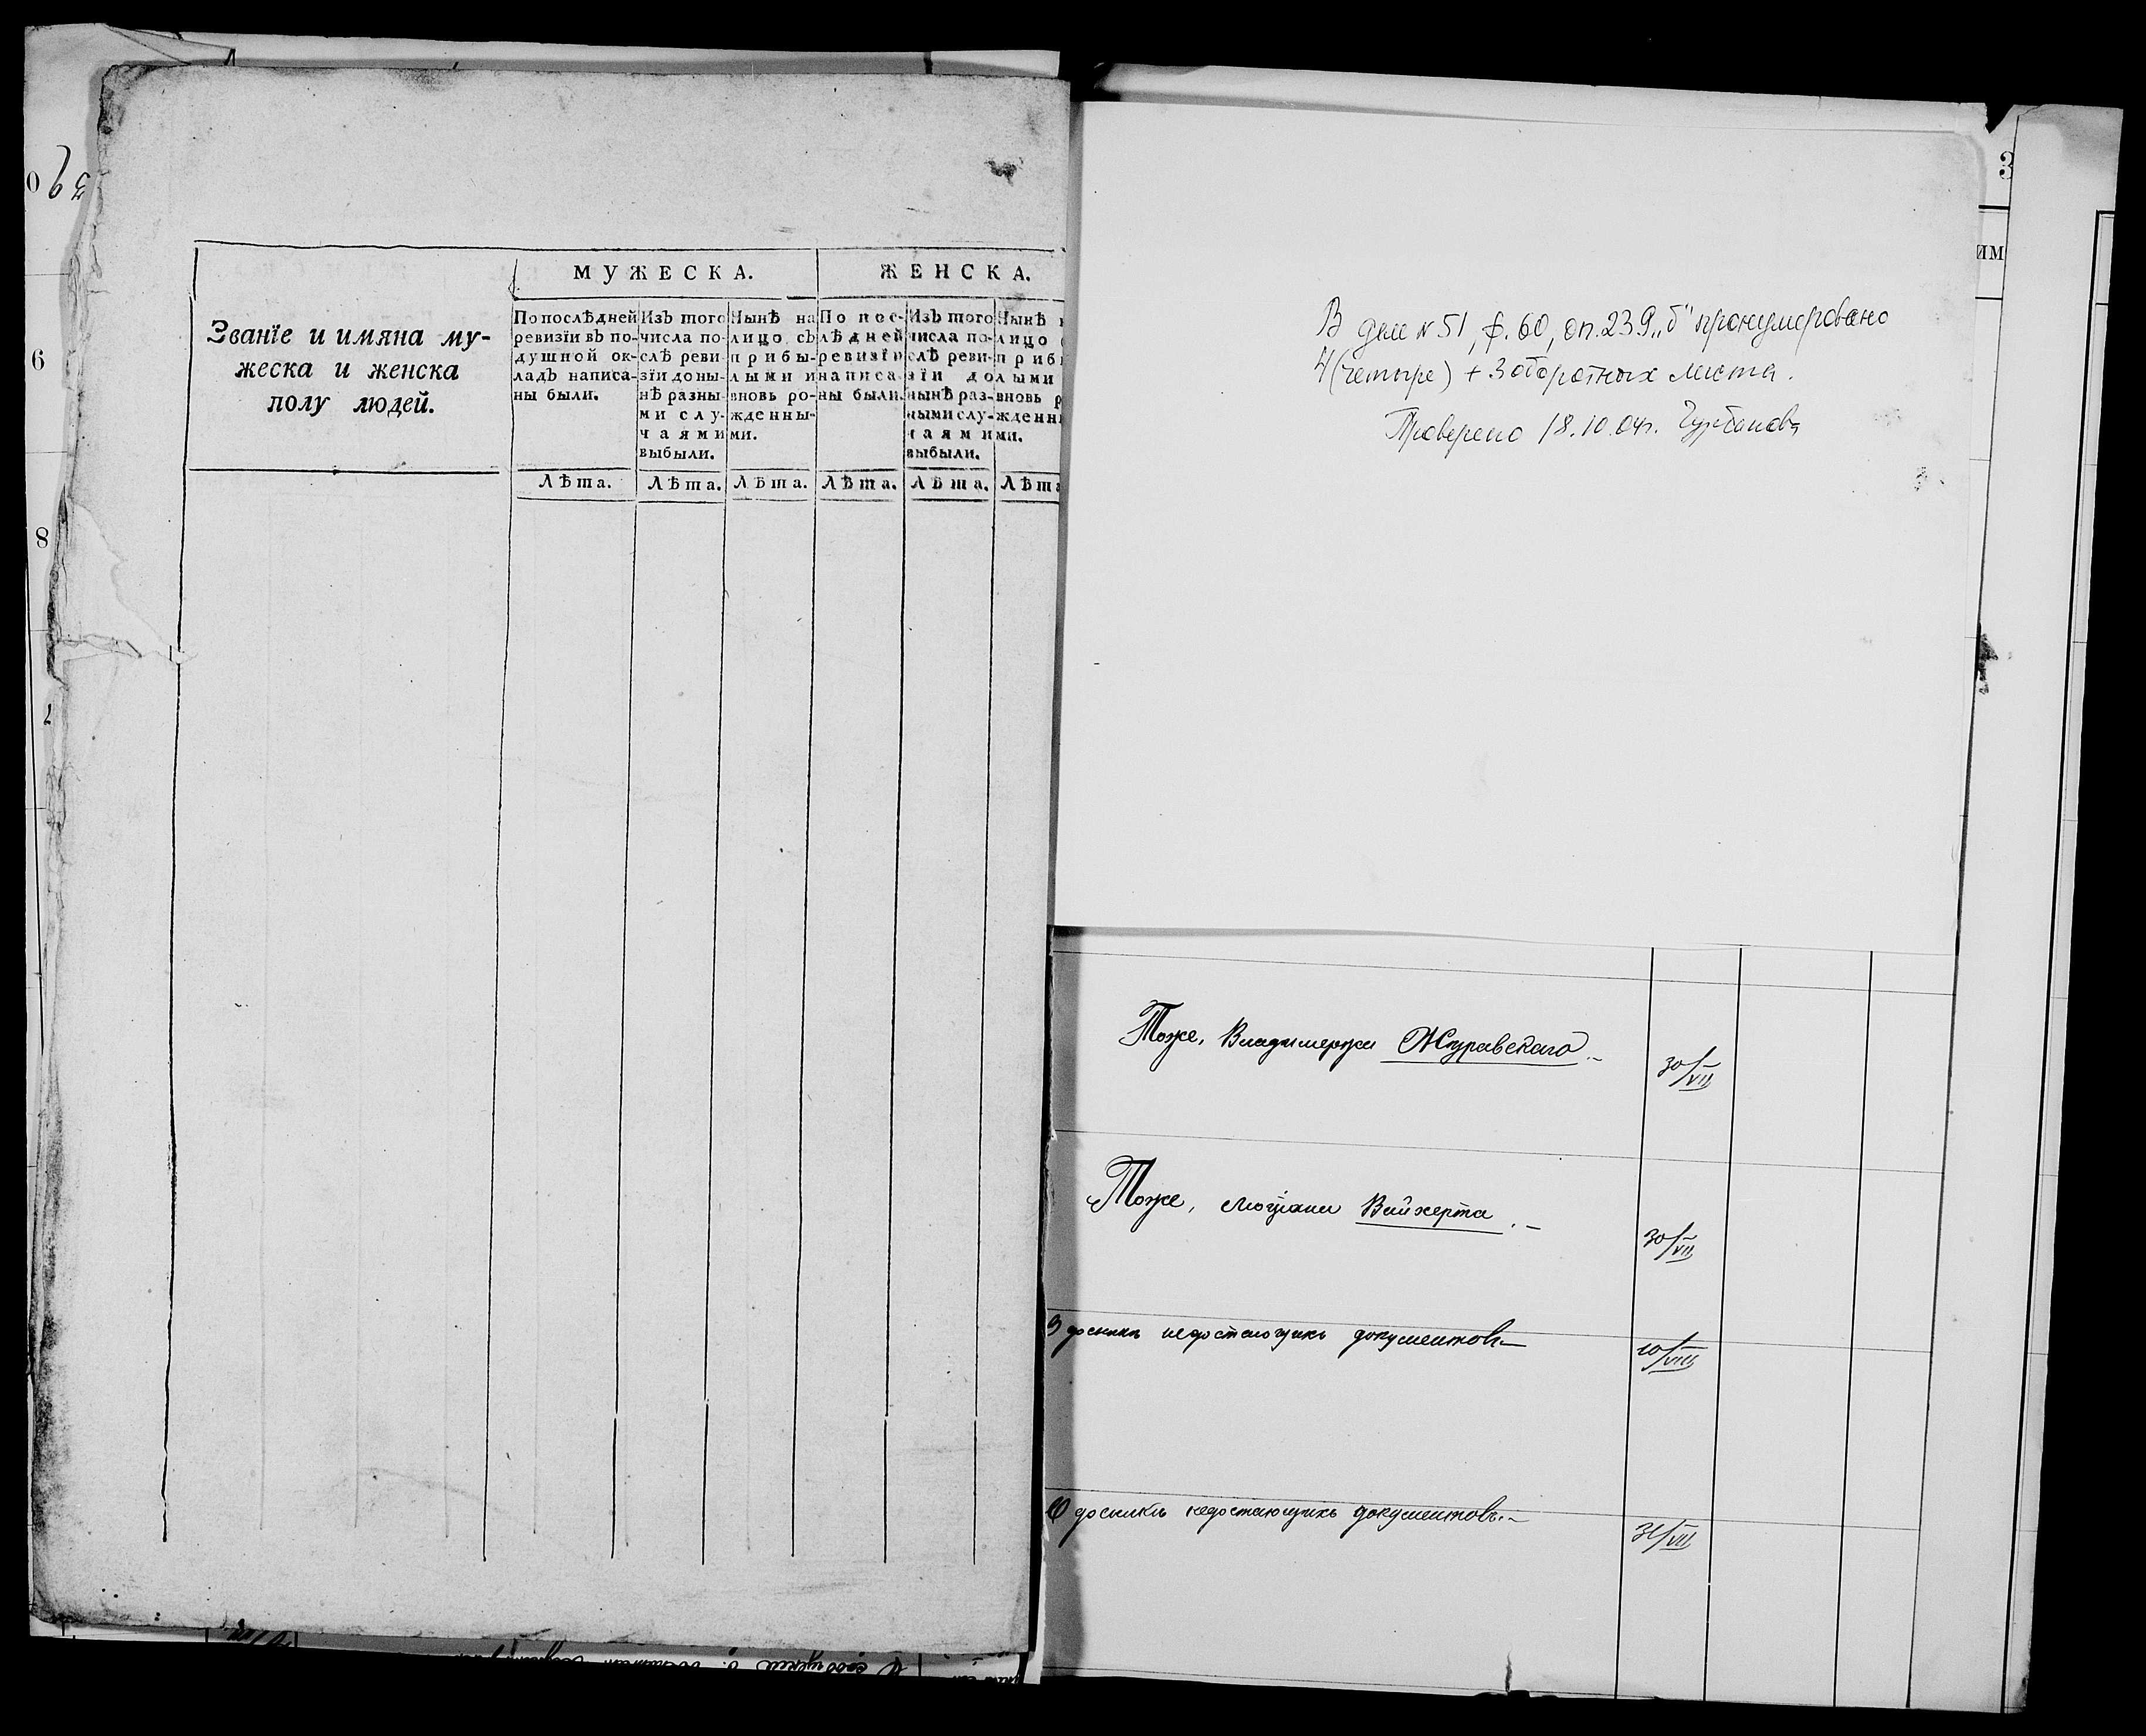 МУЖЕСКА.
ЖЕНСКА.
Званїе и имяна му-
жеска и женска
полу людей.
По послѣдней
ревизїи въ по-
душной ок-
ладъ написа-
ны были.
Изъ того
числа по-
слѣ реви-
зїи до ны-
нѣ разны-
ми слу-
чаями
выбыли.
Нынѣ на
лицо съ
прибы-
лыми и
вновь ро-
жденны-
ми.
По пос-
лѣдней
ревизїи
написа-
ны были.
Изъ того
числа по-
слѣ реви-
зїи до
нынѣ раз-
ными слу-
чаями
выбыли.
Нынѣ
лицо
приб
лыми
вновь
жденн
ми.
Лѣта. Лѣта. Лѣта. Лѣта. Лѣта. Лѣта
В деле № 51, ф. 60, оп. 239 „б" пронумеровано
4 (четыре) + 3 оборотных листа.
Проверено 18.10.04г.
Тоже, Владимержи Журавскаго.-
30/VII
Тоже, Люціани Вайхерта.-
30/VII
досылкѣ недостающихъ документовъ.-
10/VIII
О досылкѣ недостающихъ документовъ.-
31/VII
6
8
3
им